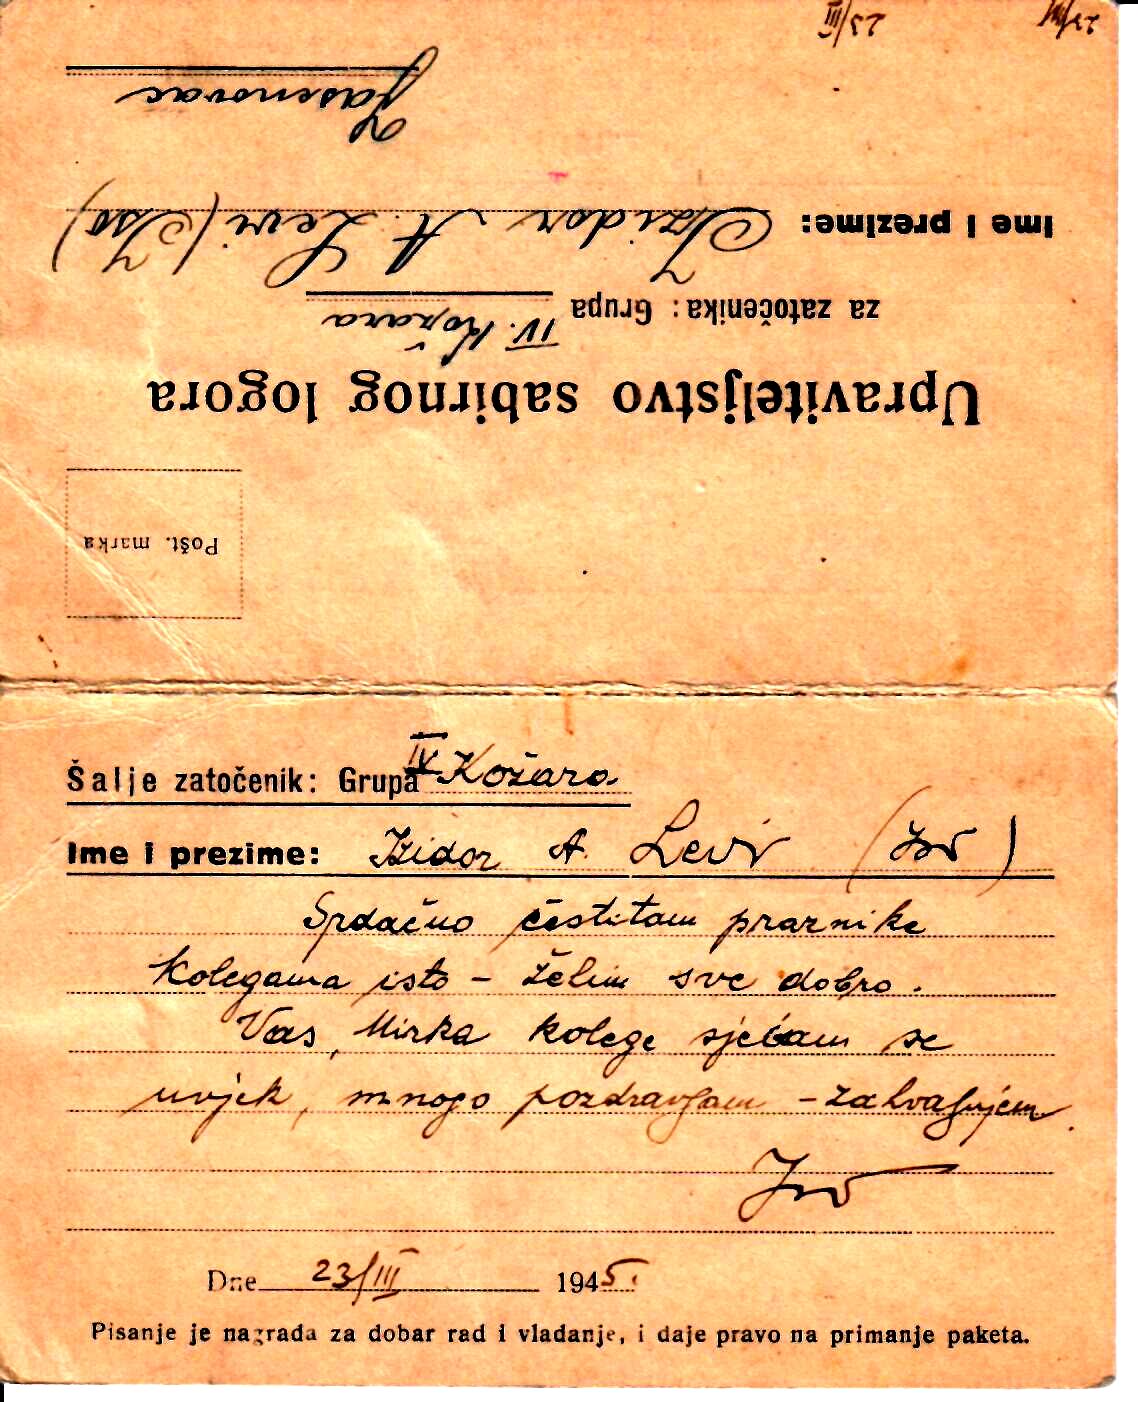 23/III
23/III
Upraviteljstvo sabirnog logora
za zatočenika: Grupa IV. Kožara
Ime i prezime: Izidor A. Levi (Iso)
Jasenovac
Pošt. marka
Šalje zatočenik: Grupa IV Kožara
Ime i prezime: Izidor A. Levi (Iso)
Srdačno čestitam praznike
kolegama isto - želim sve dobro.
Vas, Mirka kolege sjećam se
uvjek, mnogo pozdravljam - zahvaljujem.
Iso
Dne 23/III 1945.
Pisanje je nagrada za dobar rad i vladanje, i daje pravo na primanje paketa.